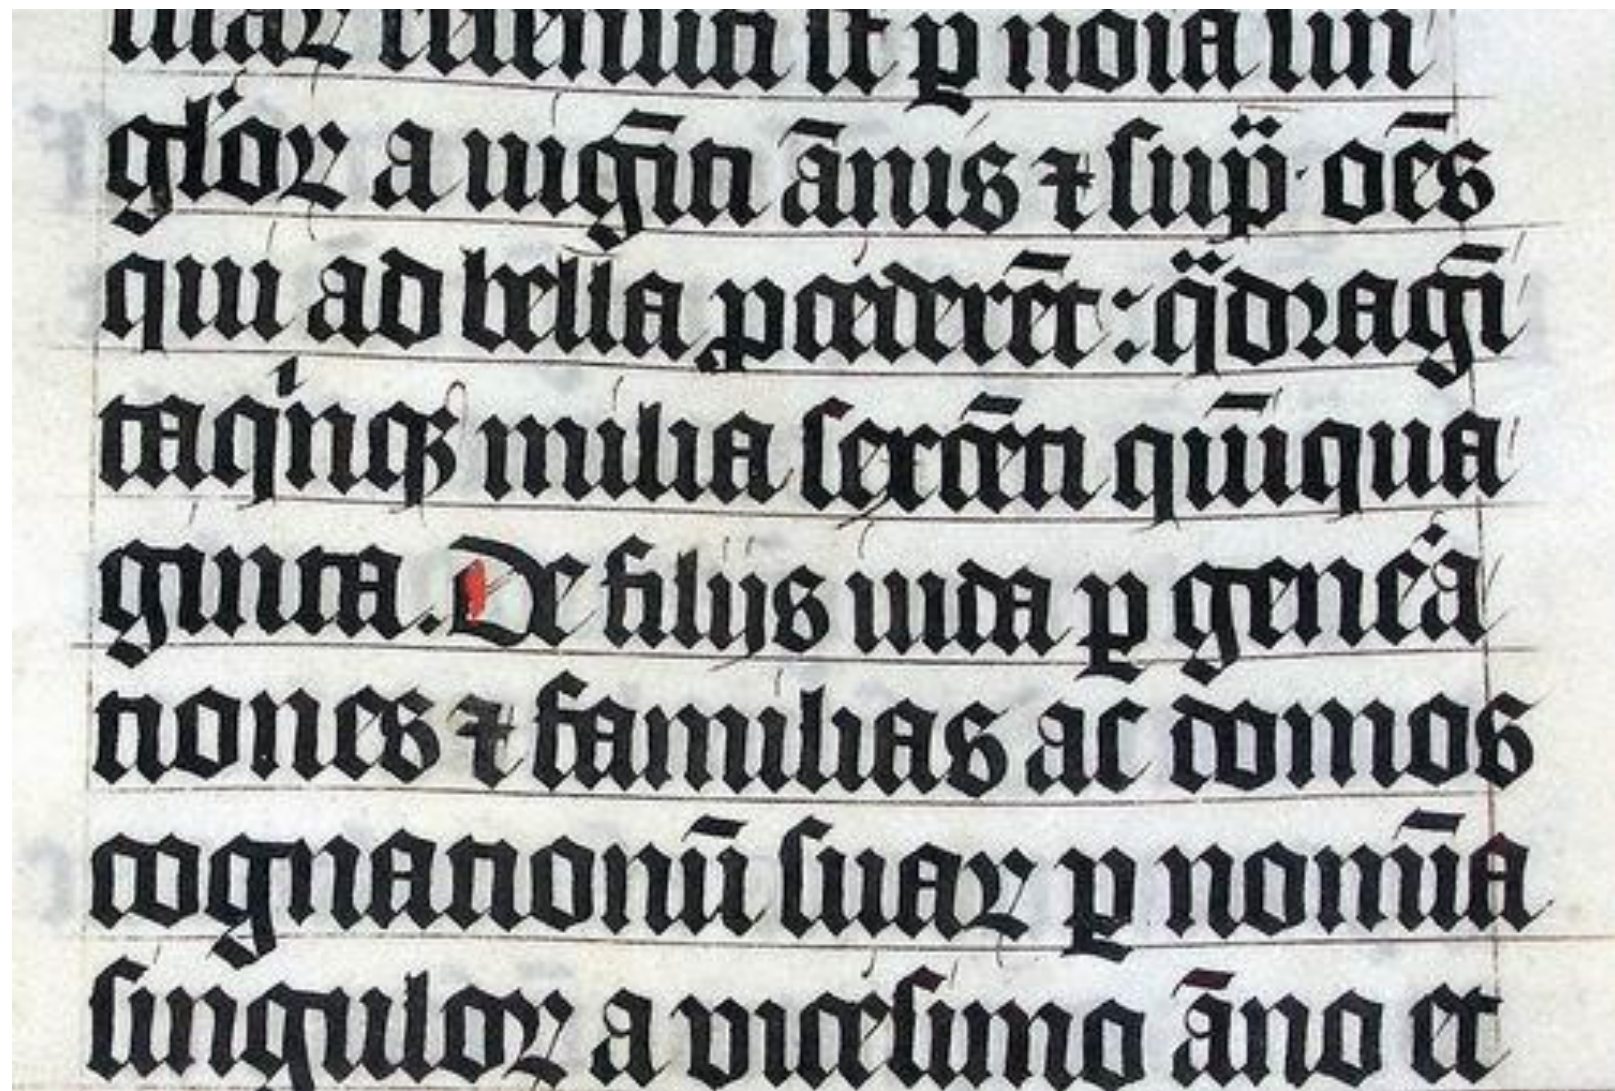 suaꝝ recensiti st̅ ꝑ noi̅a sin
gl'oꝝ a uigi̅ti a̅nis ⁊ sup̈· oe̅s
qui ad bella ꝓcedere̅t: q̈dragi̅
taqⁱnqꝫ milia sexce̅ti qui̅qua
ginta. De filijs iuda ꝑ gene͛a
tiones ⁊ familias ac domos
cognationu̅ suaꝝ ꝑ nomi̅a
singuloꝝ a vicesimo a̅no et